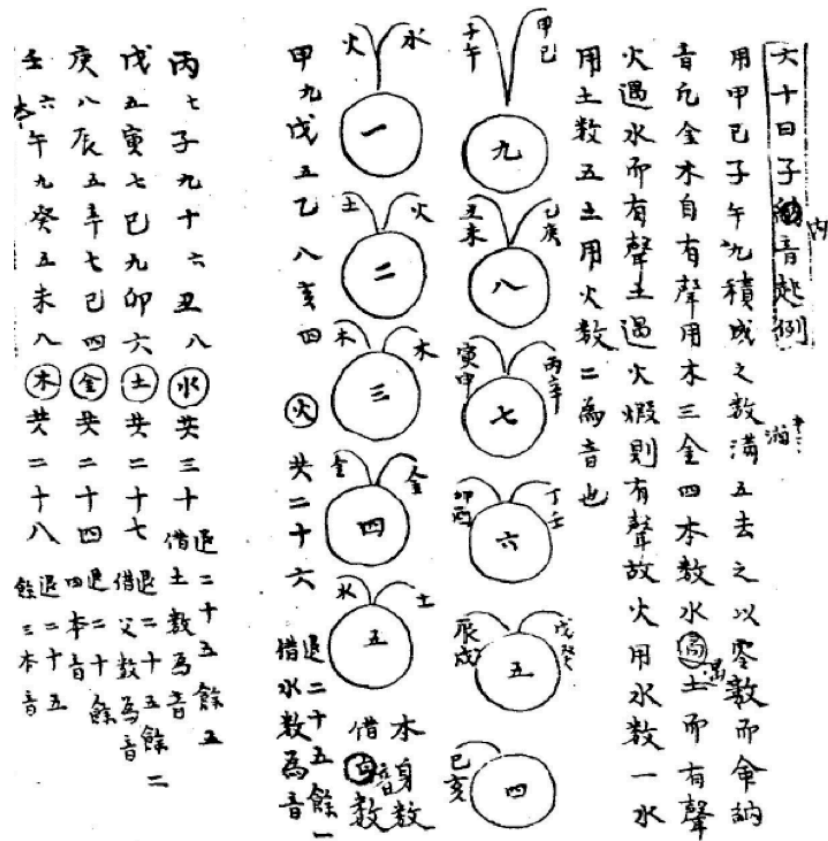 六十日子納音起例
內
用甲己子午九積成之數滿五去之以零數而命納
音凡金木自有聲用木三金四本數水土而有聲
遇
火遇水而有聲土遇火煆則有聲故火用水數一水
用土數五土用火數二為音也
甲己
子午
九
乙庚
丑未
八
丙辛
寅申
七
丁壬
卯酉
六
戊癸
辰戌
五
巳亥
四
水
火
一
火
土
二
木
木
三
金
金
四
土
水
五
本身數
借音數
甲九戊五乙八亥四
火
共二十六
退二十五餘一
借水數為音
丙七子九十六丑八
水
共三十
退二十五餘五
借土數為音
戊五寅七巳九卯六
土
共二十七
退二十五餘二
借父數為音
庚八辰五辛七巳四
金
共二十四
退二十餘
四本音
壬六午九癸五未八
木
共二十八
退二十五
餘三本音